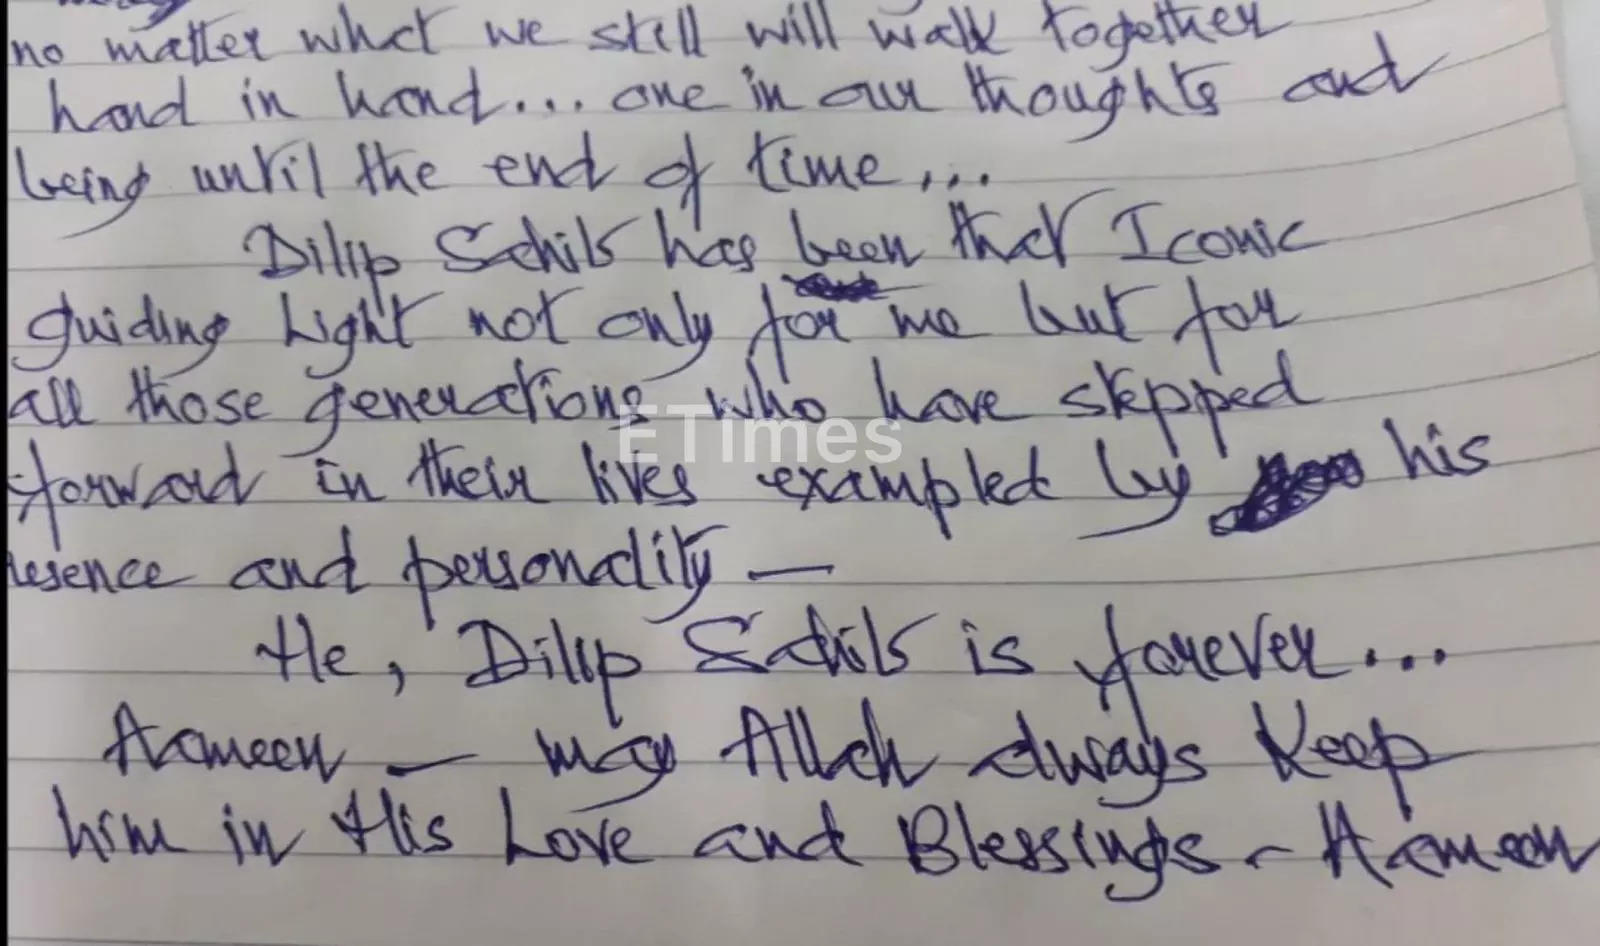 no matter what we still will walk together
hand in hand... one in our thoughts and
being until the end of time...
Dilip Sahib has been that Iconic
guiding Light not only for me but for
all those generations who have stepped
ETimes
forward in their lives exampled by his
resence and personality —
He, Dilip Sahib is forever...
Aameen — may Allah always Keep
him in His Love and Blessings - Aameen